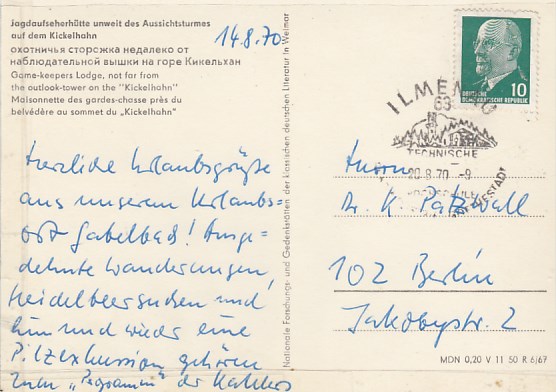 Jagdaufseherhütte unweit des Aussichtsturmes
auf dem Kickelhahn
охотничья сторожка недалеко от
наблюдательной вышки на горе Кикельхан
Game-keepers Lodge, not far from
the outlook-tower on the "Kickelhahn"
Maisonnette des gardes-chasse près du
belvédère au sommet du „Kickelhahn"
14.8.70
Herzliche Urlaubsgrüße
aus unserem Urlaubs-
ort Gabelbach! Ausge-
dehnte Wanderungen,
Heidelbeersuchen und
hin und wieder eine
Pilzexkursion gehören
zum „Programm" der
Nationale Forschungs- und Gedenkstätten der klassischen deutschen Literatur in Weimar
10
DEUTSCHE
DEMOKRATISCHE REPUBLIK
ILMENAU
63
TECHNISCHE
20.8.70 -9
Dr. K. Patzwall
102 Berlin
Jakobystr. 2
MDN 0,20 V 11 50 R 6/67